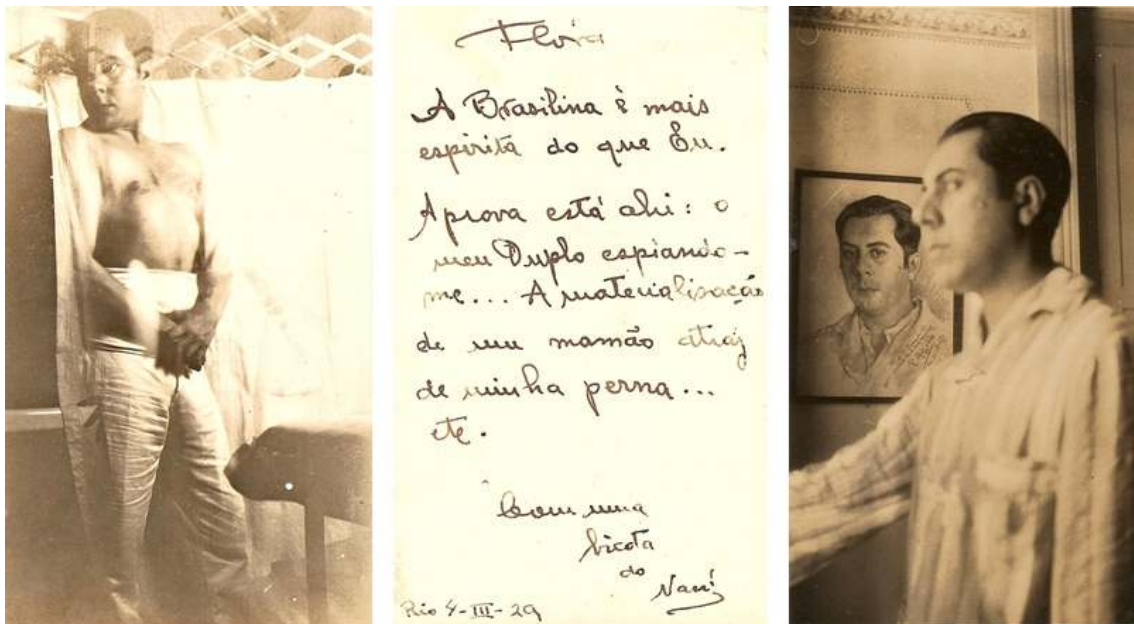 Flora
A Brasilina è mais
espirita do que Eu.
A prova está ahi: o
meu Duplo espiando-
me... A materialisação
de um mamão atraz
de minha perna...
etc.
Com uma
bicota
do
Rio 4-III-29